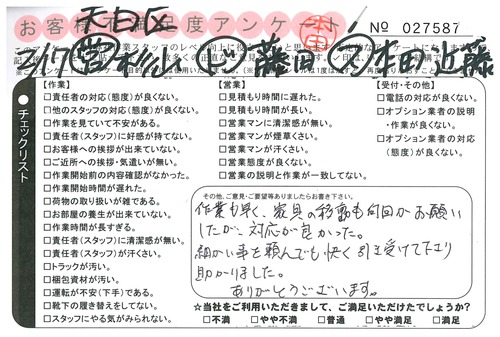 天白区
お客様不満足度アンケート
№ 027587
チェックリスト
【作業】
□責任者の対応(態度)が良くない。
□他のスタッフの対応(態度)が良くない。
□作業を見ていて不安がある。
□責任者(スタッフ)に好感が持てない。
□お客様への挨拶が出来ていない。
□ご近所への挨拶・気遣いが無い。
□作業開始前の内容確認がなかった。
□作業開始時間が遅れた。
□荷物の取り扱いが雑である。
□お部屋の養生が出来ていない。
□作業時間が長すぎる。
□責任者(スタッフ)に清潔感が無い。
□責任者(スタッフ)が汗くさい。
□トラックが汚い。
□梱包資材が汚い。
□運転が不安(下手)である。
□靴下の履き替えをしてない。
□スタッフにやる気がみられない。
【営業】
□見積もり時間に遅れた。
□見積もり時間が長い。
□営業マンに清潔感が無い。
□営業マンが煙草くさい。
□営業マンが汗くさい。
□営業態度が良くない。
□営業の説明と作業が一致してない。
【受付・その他】
□電話の対応が良くない。
□オプション業者の説明
・作業が良くない。
□オプション業者の対応
(態度)が良くない。
その他、ご意見・ご要望等ありましたらお書き下さい。
作業も早く、家具の移動も何回かお願い
したが、対応が良かった。
細かい事を頼んでも快く引き受けて下さり
助かりました。
ありがとうございます。
☆当社をご利用いただきまして、ご満足いただけたでしょうか?
□不満 □やや不満 □普通 □やや満足 □満足